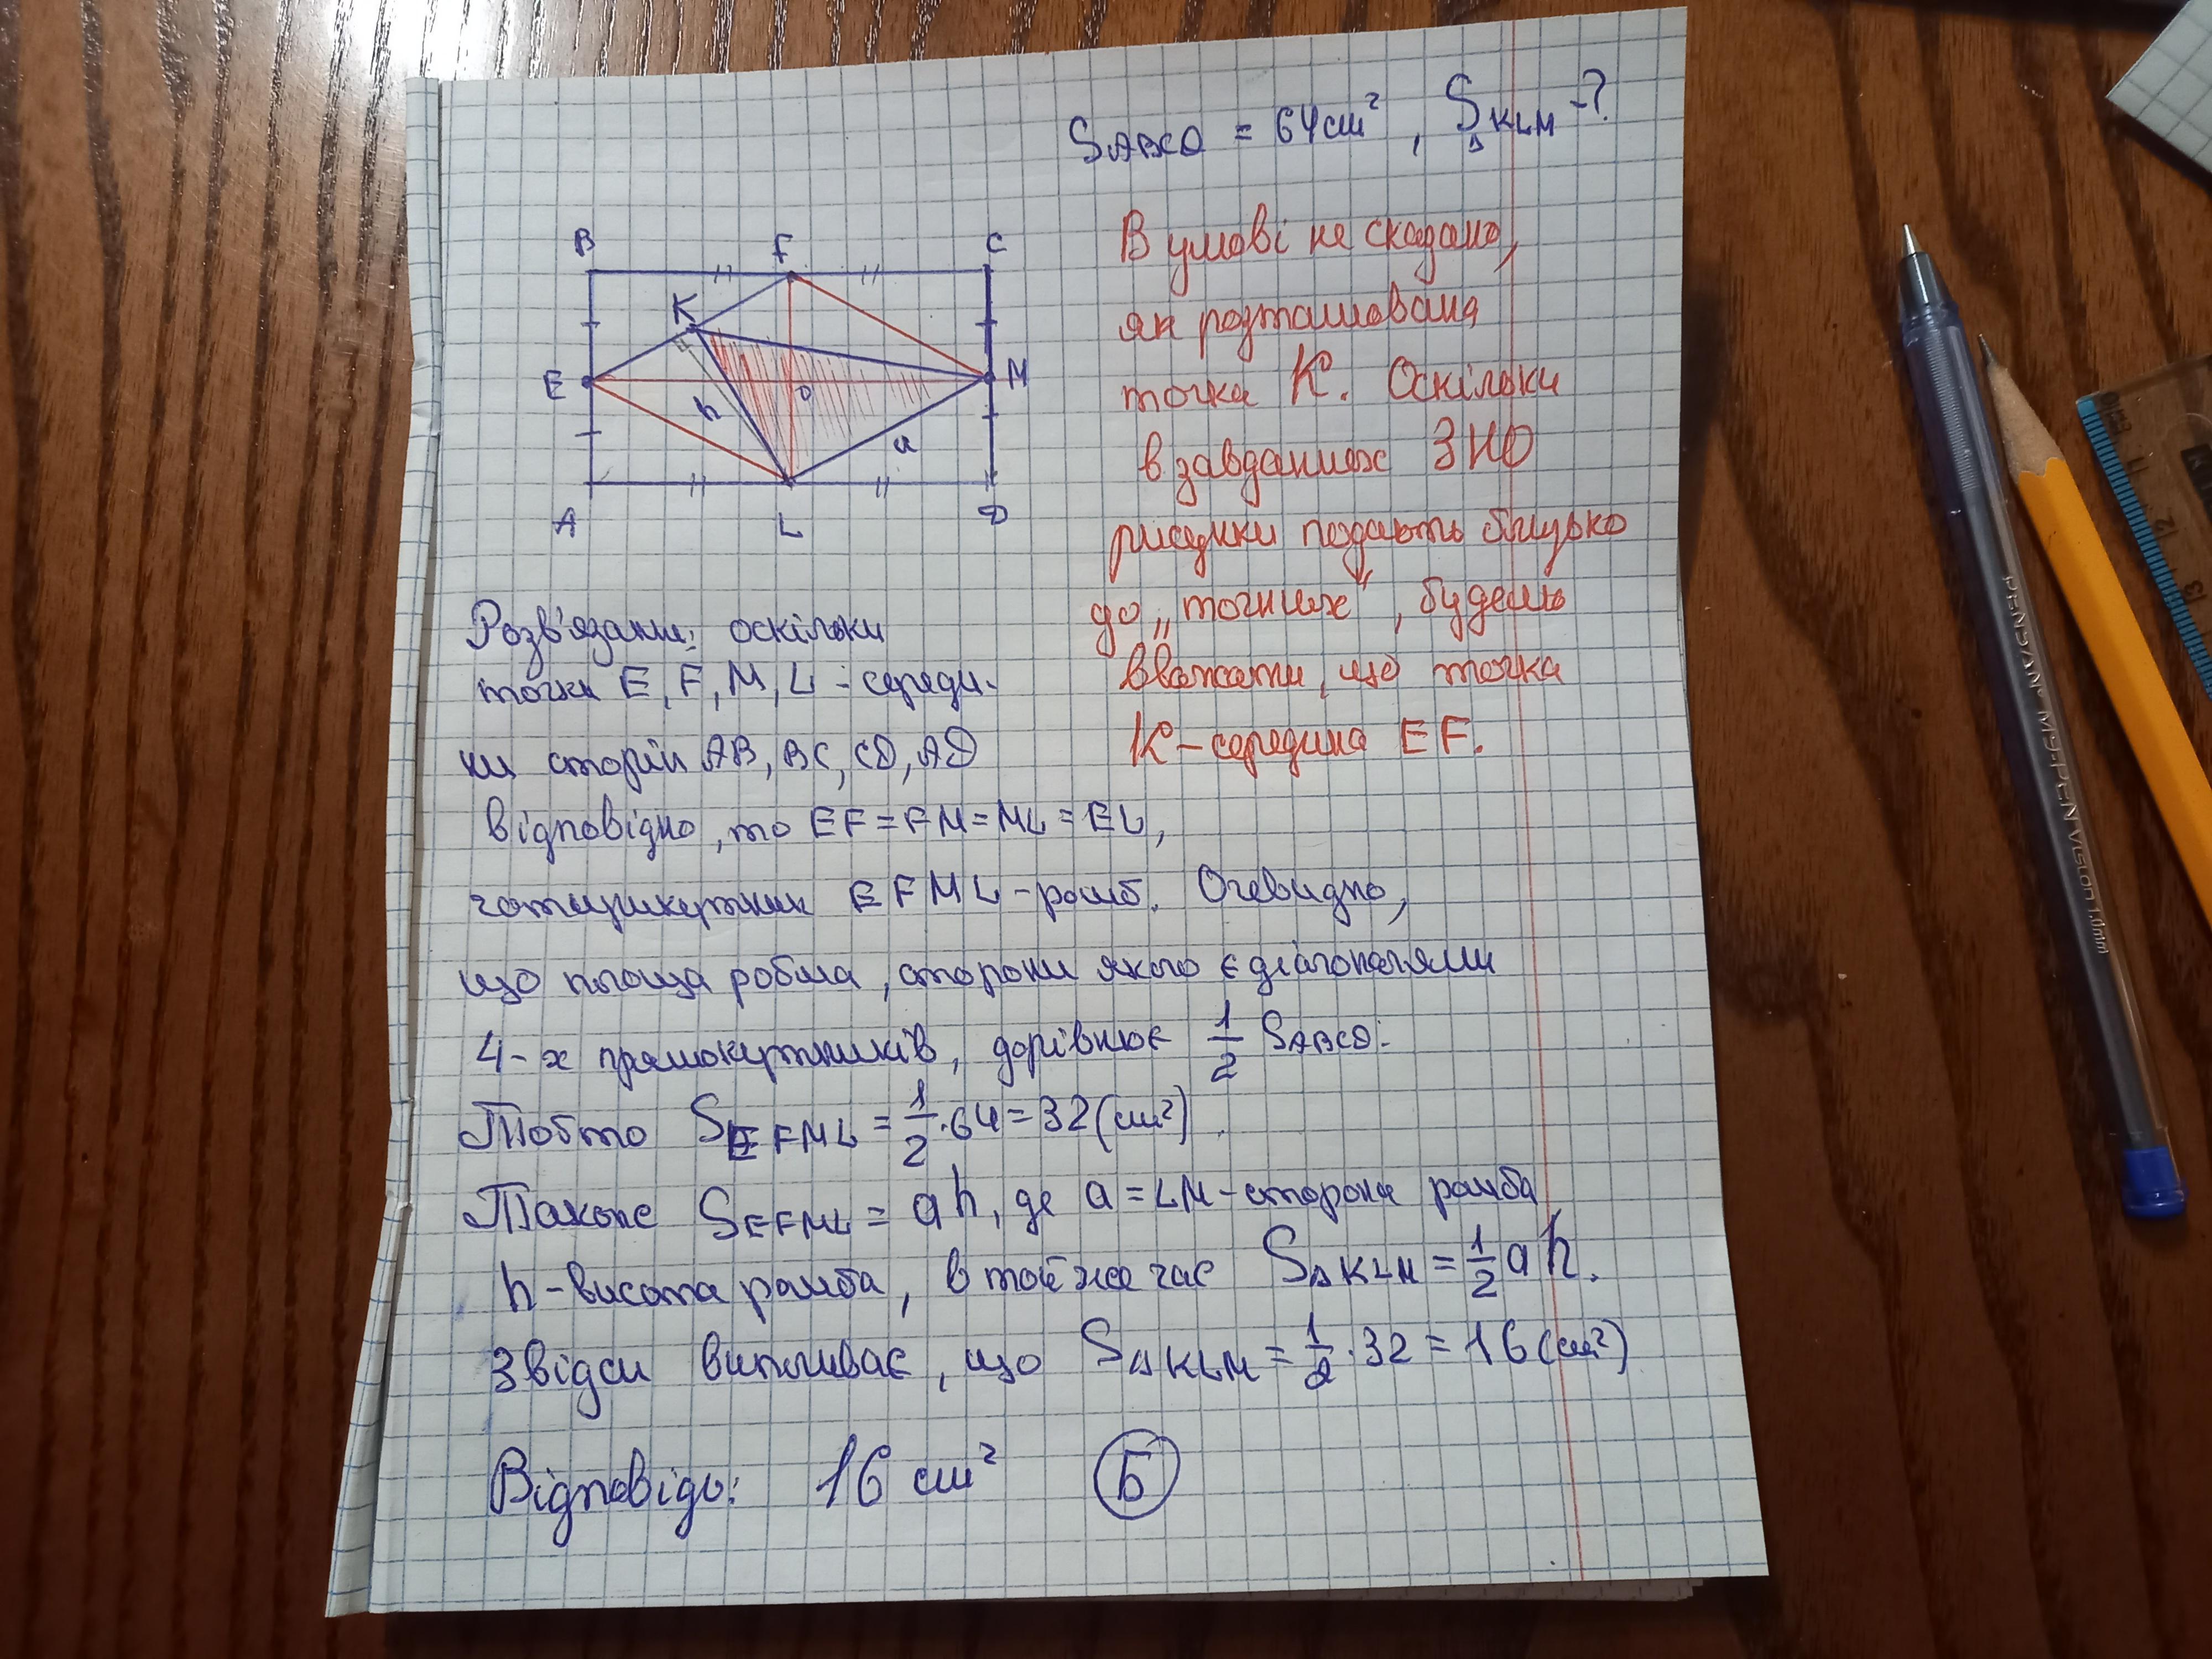 S ABCD = 64 см², S △KLM -?
В умові не сказано,
як розташована
точка K. Оскільки
в завданнях ЗНО
рисунки подають близько
до „точних", будемо
вважати, що точка
K - середина EF.
B F C
K
E O M
h a
A L D
Розв'язання: оскільки
точки E, F, M, L - середи-
ни сторін AB, BC, CD, AD
відповідно, то EF = FM = ML = EL,
чотирикутник EFML - ромб. Очевидно,
що площа робма, сторони якого є діагоналями
4-х прямокутників, дорівнює 1/2 S ABCD.
Тобто S EFML = 1/2 · 64 = 32 (см²).
Також S EFML = ah, де a = LM - сторона ромба
h - висота ромба, в той же час S △KLM = 1/2 ah.
Звідси випливає, що S △KLM = 1/2 · 32 = 16 (см²)
Відповідь: 16 см² Б
PENSAN MY-PEN VISION 1.0mm